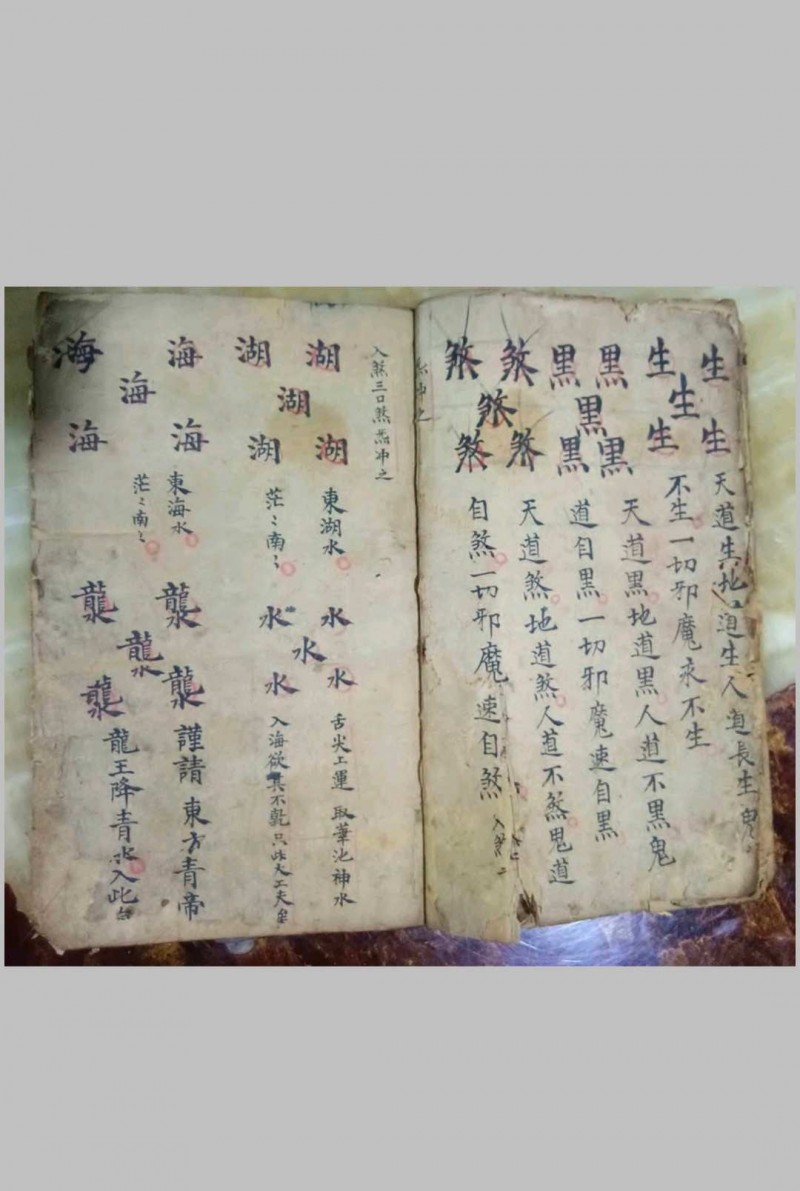 生 生
生
生 生
天道生地道生人道長生鬼
不生一切邪魔永不生
黑 黑
黑
黑 黑
天道黑地道黑人道不黑鬼
道自黑一切邪魔速自黑
煞 煞
煞
煞 煞
天道煞地道煞人道不煞鬼道
自煞一切邪魔速自煞
入煞三口煞炁冲之
湖 湖
湖
湖 湖
東湖水
茫〻南〻
水 水
水
水 水
舌尖工運 取華池神水
入海欲其不乾只此大工夫
海 海
海
海 海
東海水
茫〻南〻
謹請東方青帝
龍王降青水入此